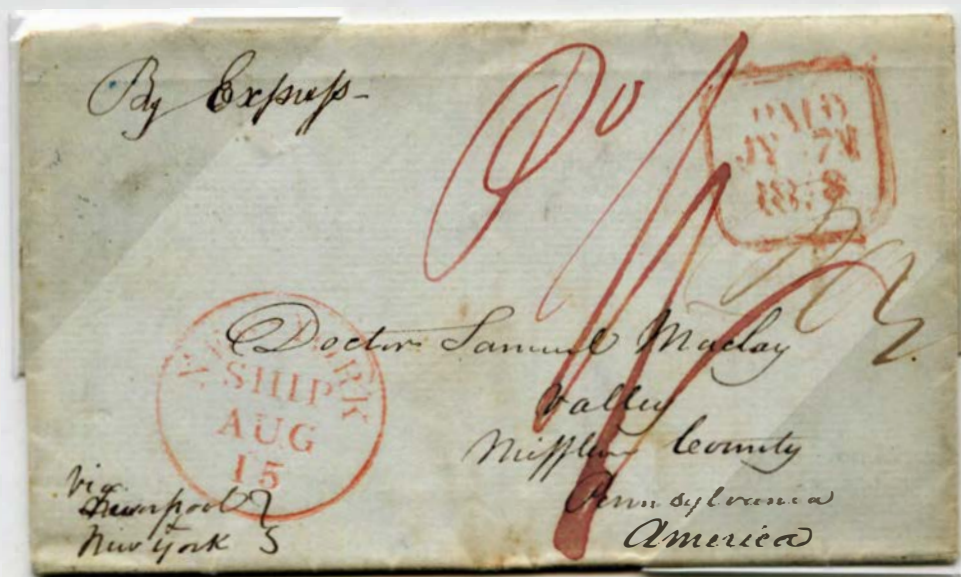 By Express
Pd
PAID
JY 27
NEW YORK
SHIP
AUG
15
Doctor Samuel Maclay
Valley
Mifflin County
Pennsylvania
America
via
Liverpool }
New York